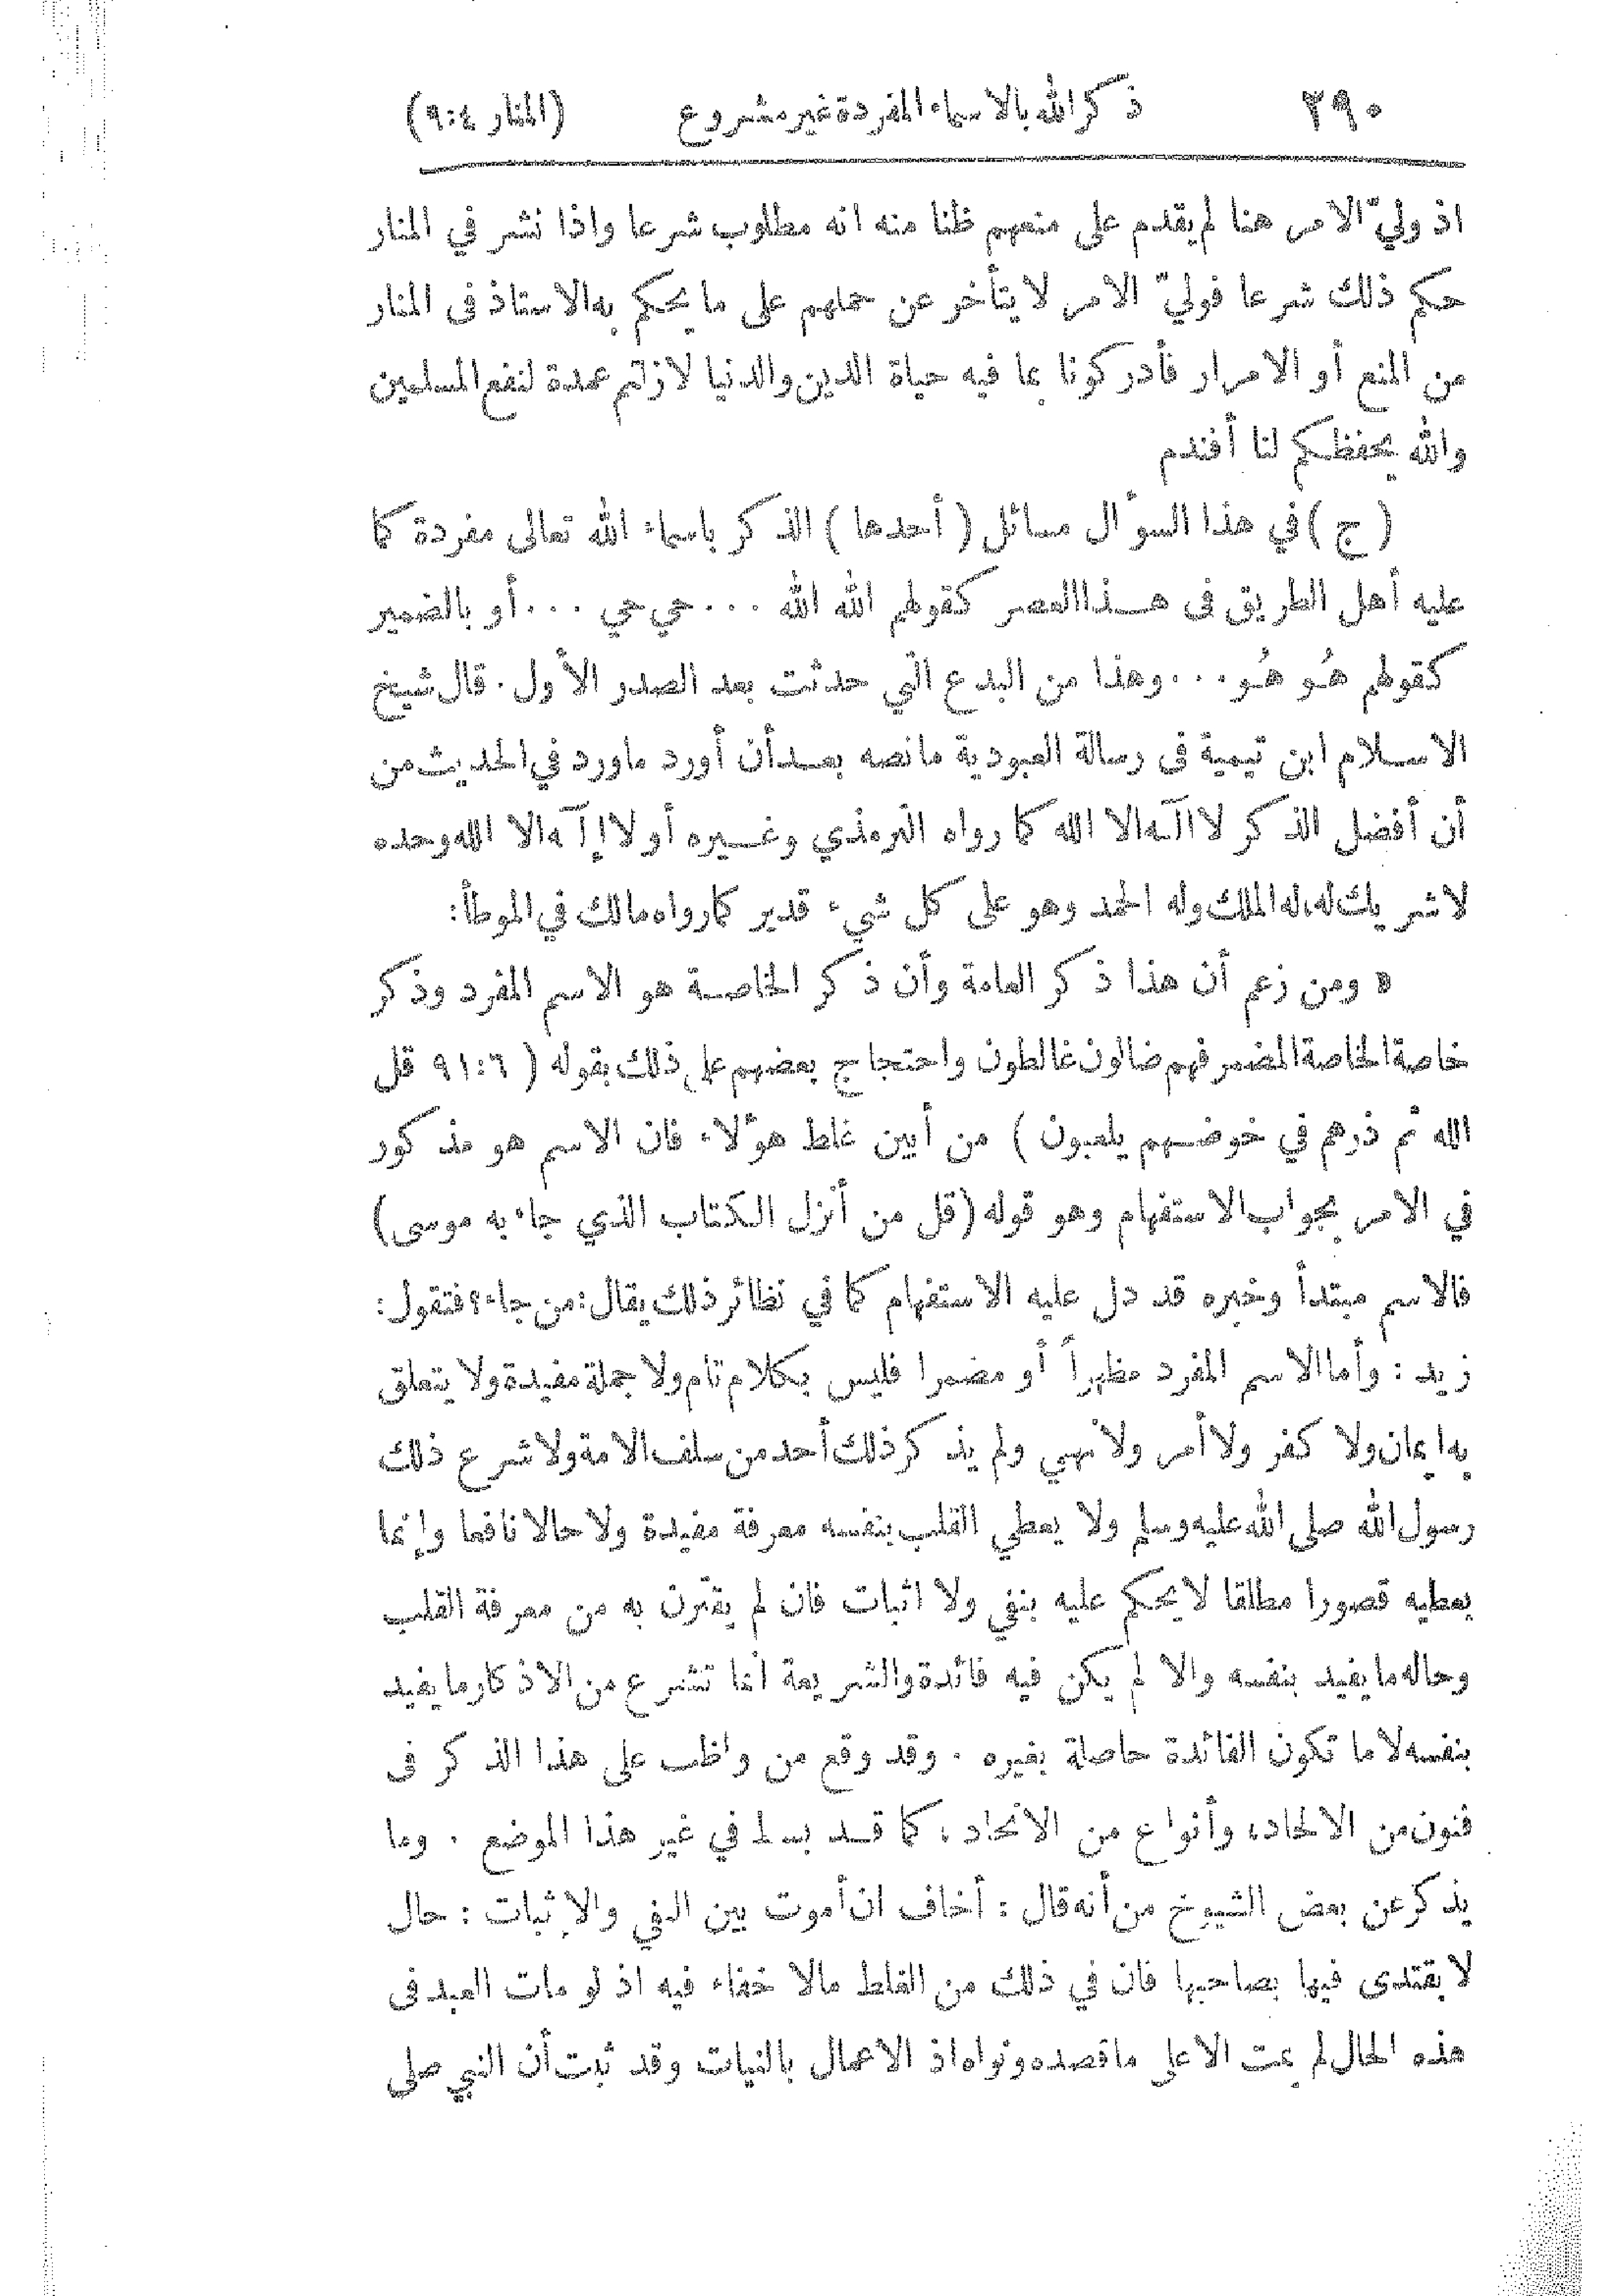 ٢٩٠ ذكر الله بالاسماء المفردة غير مشروع (المنار ٩:٤)
اذ وليّ الامر هنا لم يقدم على منعهم ظنا منه انه مطلوب شرعا واذا نشر في المنار
حكم ذلك شرعا فوليّ الامر لا يتأخر عن حملهم على ما يحكم به الاستاذ في المنار
من المنع أو الامرار فأدركونا بما فيه حياة الدين والدنيا لازلتم عمدة لنفع المسلمين
والله يحفظكم لنا أفندم
(ج) في هذا السؤال مسائل (أحدها) الذكر باسماء الله تعالى مفردة كما
عليه أهل الطريق في هذا العصر كقولهم الله الله ... حي حي ... أو بالضمير
كقولهم هُو هُو... وهذا من البدع التي حدثت بعد الصدر الأول. قال شيخ
الاسلام ابن تيمية في رسالة العبودية ما نصه بعد أن أورد ما ورد في الحديث من
أن أفضل الذكر لا اآله الا الله كما رواه الترمذي وغيره أو لا إآله الا الله وحده
لا شريك له، له الملك وله الحمد وهو على كل شيء قدير كما رواه مالك في الموطأ:
« ومن زعم أن هذا ذكر العامة وأن ذكر الخاصة هو الاسم المفرد وذكر
خاصة الخاصة المضمر فهم ضالون غالطون واحتجاج بعضهم على ذلك بقوله (٩١:٦ قل
الله ثم ذرهم في خوضهم يلعبون) من أبين غلط هؤلاء فان الاسم هو مذكور
في الامر بجواب الاستفهام وهو قوله (قل من أنزل الكتاب الذي جاء به موسى)
فالاسم مبتدأ وخبره قد دل عليه الاستفهام كما في نظائر ذلك يقال: من جاء؟ فتقول:
زيد: وأما الاسم المفرد مظهراً أو مضمرا فليس بكلام تام ولا جملة مفيدة ولا يتعلق
به ايمان ولا كفر ولا أمر ولا نهي ولم يذكر ذلك أحد من سلف الامة ولا شرع ذلك
رسول الله صلى الله عليه وسلم ولا يعطي القلب بنفسه معرفة مفيدة ولا حالا نافعا وإنما
يعطيه قصورا مطلقا لا يحكم عليه بنفي ولا اثبات فان لم يقترن به من معرفة القلب
وحاله ما يفيد بنفسه والا لم يكن فيه فائدة والشريعة انما تشرع من الاذكار ما يفيد
بنفسه لا ما تكون الفائدة حاصلة بغيره. وقد وقع من واظب على هذا الذكر في
فنون من الالحاد، وأنواع من الاتحاد، كما قد بسط في غير هذا الموضع. وما
يذكر عن بعض الشيوخ من أنه قال: أخاف ان أموت بين النفي والإثبات: حال
لا يقتدى فيها بصاحبها فان في ذلك من الغلط مالا خفاء فيه اذ لو مات العبد في
هذه الحال لم يمت الا على ما قصده ونواه اذ الاعمال بالنيات وقد ثبت أن النبي صلى